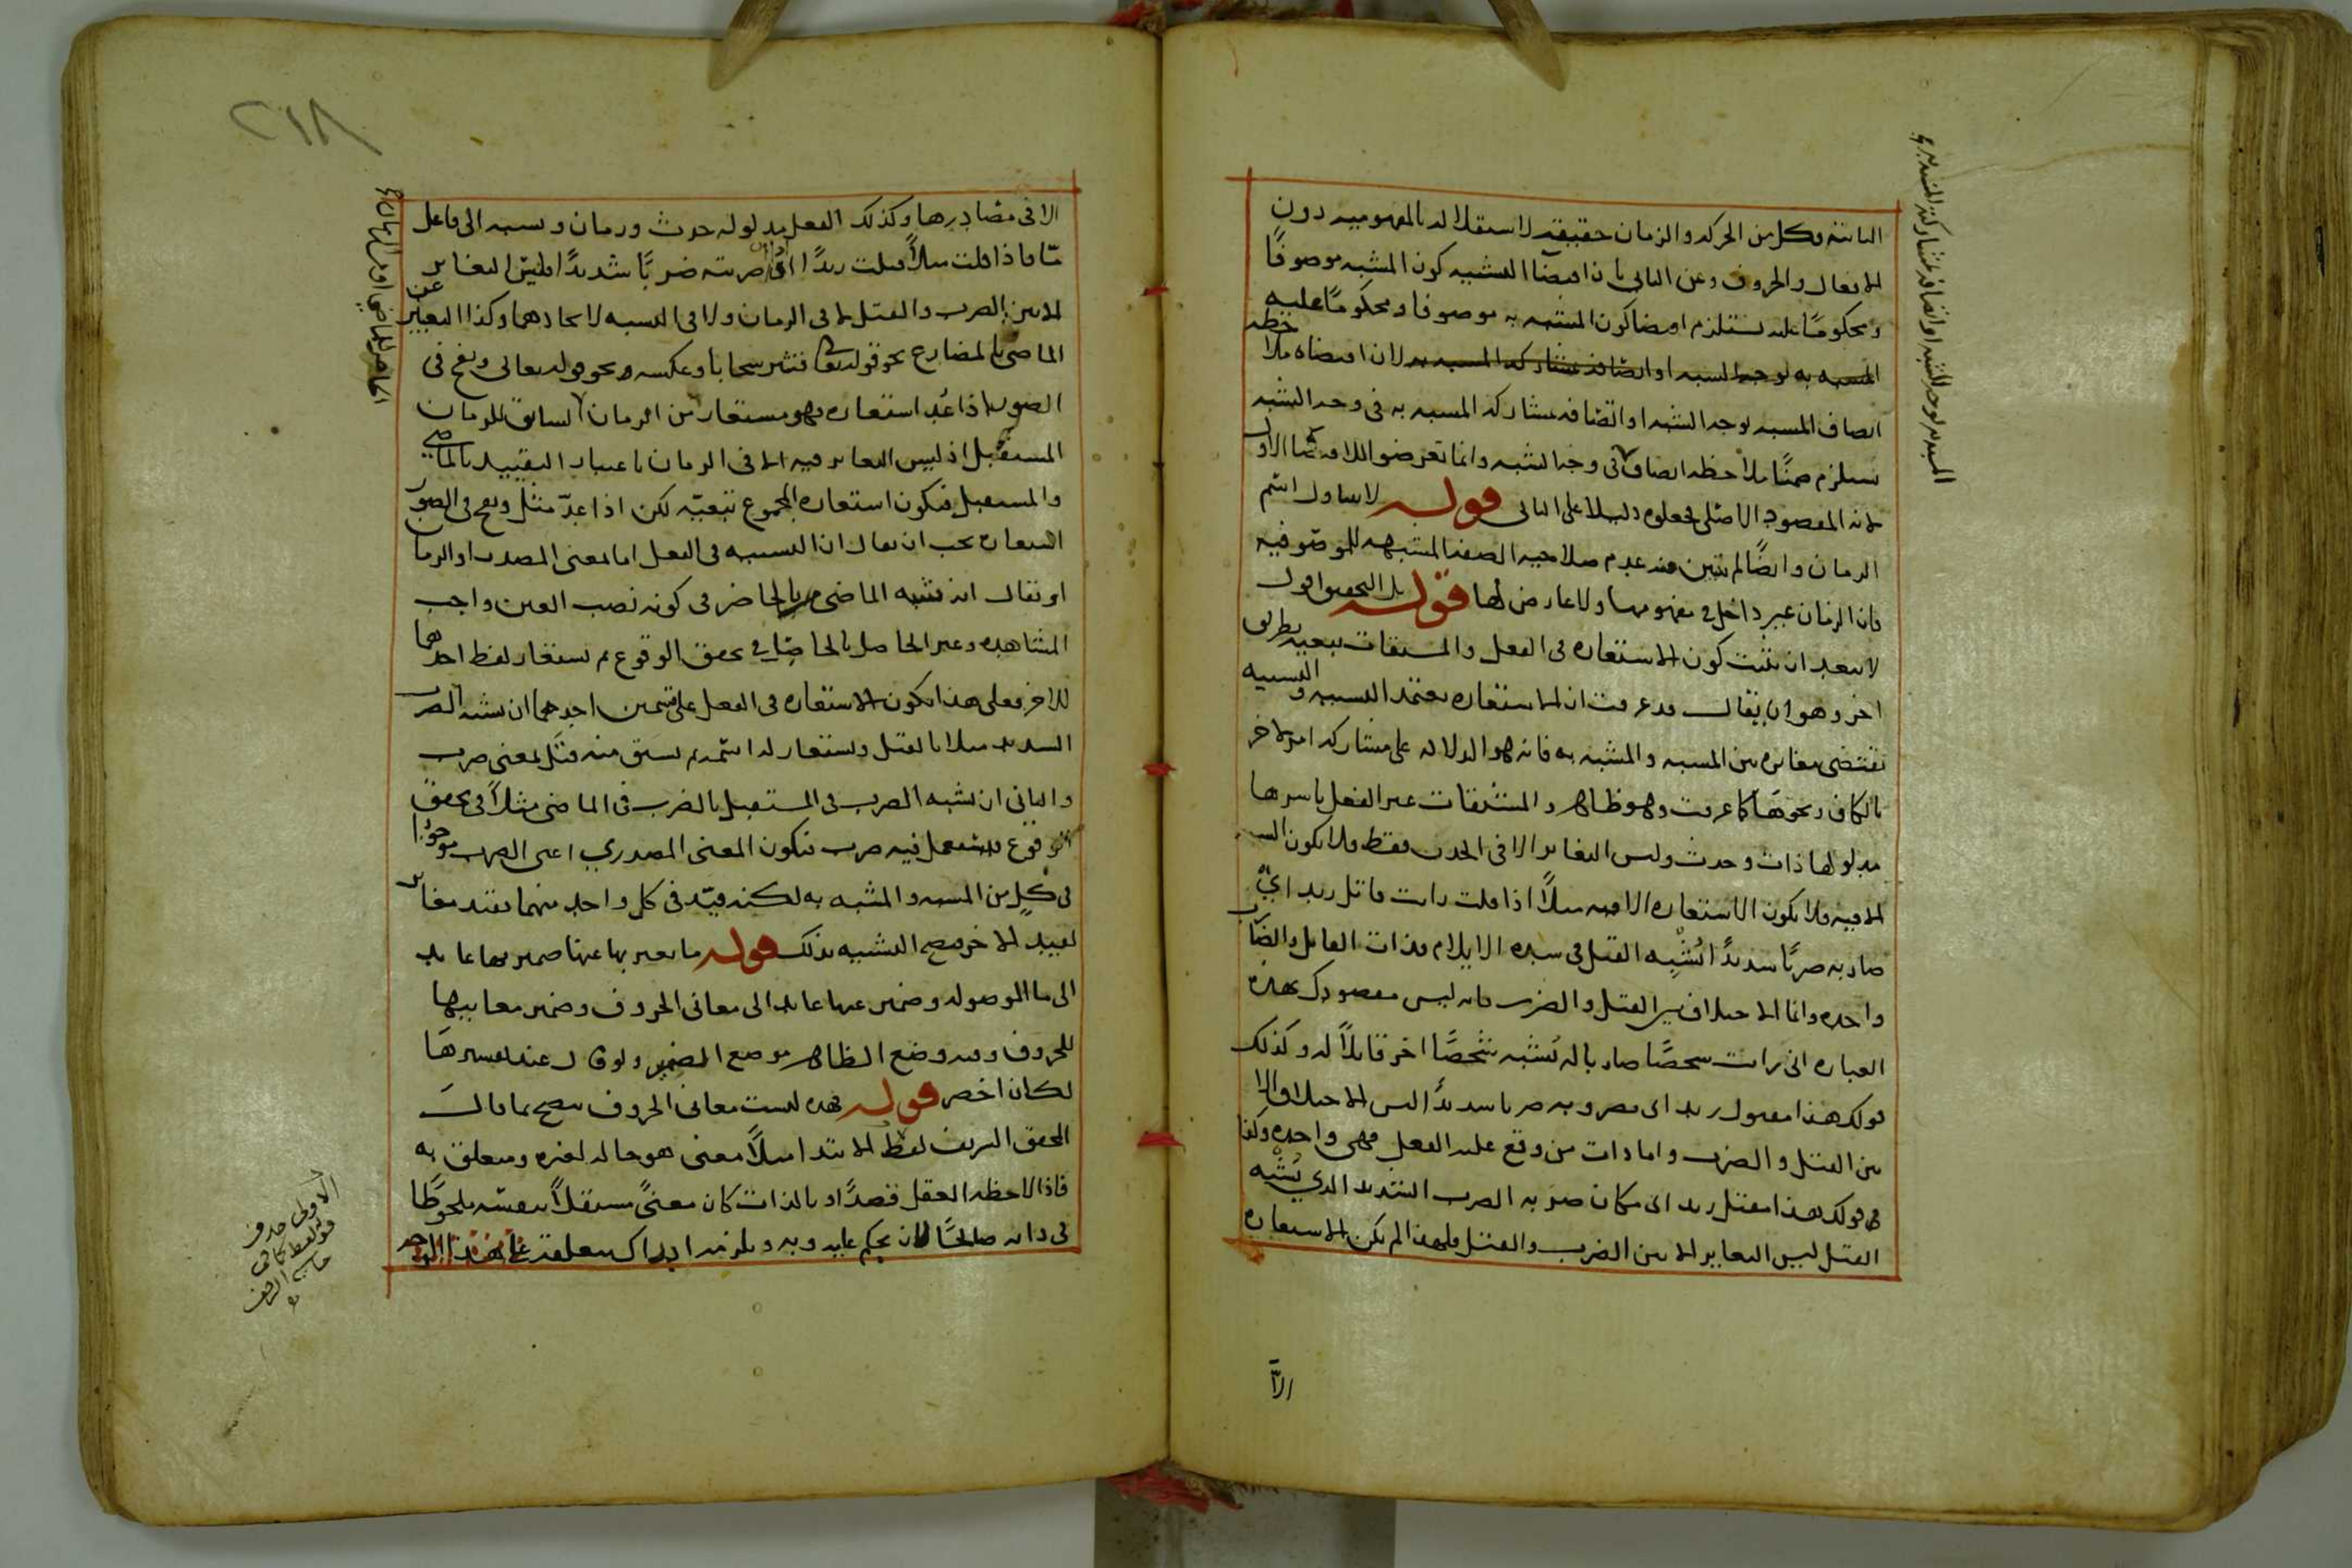 الثابتة وكل من الحركة والزمان حقيقة لاستقلاله بالمفهومية دون
الافعال والحروف وعن الثاني بان اقتضا التشبيه كون المشبه موصوفًا
ومحكومًا عليه يستلزم اقتضا كون المشبه به موصوفا ومحكومًا عليه
لان اقتضاه ملاحظة
اتصاف المشبه بوجه الشبه او اتصافه بمشاركة المشبه به في وجه الشبه
يستلزم ضمنًا ملاحظة اتصاف في وجه الشبه وانما تعرضوا الاول
لانه المقصود الاصلي فجعلوه دليلا على الثاني قوله لا يتناول اسم
الزمان وايضًا لم يتبين منه عدم صلاحية الصفة المشبهة للموصوفية
فان الزمان غير داخل في مفهومها ولا عارض لها قوله بل التحقيق اقول
لا يبعد ان نثبت كون الاستعاره في الفعل والمشتقات تبعية بطريق
اخر وهو ان يقال قد عرفت ان الاستعاره تعتمد التشبيه والتشبيه
تقتضي مغايره بين المشبه والمشبه به فانه هو الدلالة على مشاركة امر لاخر
بالكاف ونحوها كما عرفت وهو ظاهر والمشتقات غير الفعل باسرها
مدلولها ذات وحدث وليس التغاير الا في الحدث فقط فلا يكون التشبيه
الا فيه فلا يكون الاستعاره الا فيه مثلًا اذا قلت رايت قاتل زيد اي
ضاربه ضربًا شديدًا يُشْبِه القتل في شدة الايلام فذات القاتل والضارب
واحده وانما الاختلاف بين القتل والضرب فانه ليس مقصودك بهذه
العباره اني رايت شخصًا ضاربا له يُشبه شخصًا اخر قاتلًا له وكذلك
قولك هذا مقتول زيد اي مضروبه ضربا شديدًا ليس الاختلاف الا
بين القتل والضرب واما ذات من وقع عليه الفعل فهي واحده وكذا
في قولك هذا مقتل زيد اي مكان ضربه الضرب الشديد الذي يُشْبه
القتل ليس التغاير الا بين الضرب والقتل فلهذا لم يكن الاستعاره
الاَّ
٢١٨
الا في مصادرها وكذلك الفعل مدلوله حدث وزمان ونسبه الى فاعل
مّا فاذا قلت مثلًا قتلت زيدًا اي ضربته ضربًا شديدًا فليس التغاير
الا بين الضرب والقتل لا في الزمان ولا في النسبه لاتحادهما وكذا التعبير عن
الماضي بالمضارع نحو قوله تعالى فتثير سحابا وعكسه نحو قوله تعالى ونفخ في
الصور اذا عُد استعاره فهو مستعار من الزمان السابق للزمان
المستقبل اذ ليس التغاير فيه الا في الزمان باعتبار التقييد بالماضي
والمستقبل فتكون استعارة المجموع تبعيّه لكن اذا عدّ مثل ونفخ في الصور
استعاره يجب ان يقال ان التشبيه في الفعل اما لمعنى المصدر او الزمان
او يقال انه تشبه الماضي بالحاضر في كونه نصب العين واجب
المشاهده وغير الحاصل بالحاصل في تحقق الوقوع ثم يستعار لفظ احدهما
للاخر فعلى هذا تكون الاستعاره في الفعل على قسمين احدهما ان يشبه الضرب
الشديد مثلا بالقتل ويستعار له اسمه ثم يشتق منه قتل بمعنى ضرب
والثاني ان يشبه الضرب في المستقبل بالضرب في الماضي مثلًا في تحقق
الوقوع فيستعمل فيه ضرب فتكون المعنى المصدري اعني الضرب موجودًا
في كلٍ من المشبه والمشبه به لكنه قيّد في كل واحد منهما بقيد مغاير
لقييد الاخر فصح التشبيه بذلك قوله ما يعبر بها عنها ضمير بها عايد
الى ما الموصوله وضمير عنها عايد الى معاني الحروف وضمير معانيها
للحروف وفيه وضع الظاهر موضع المضمر ولو قال عند تفسيرها
لكان اخصر قوله فهذه ليست معاني الحروف يتضح بما قال
المحقق الشريف لفظ الابتدا مثلًا معنى هو حاله لغيره ومتعلق به
فاذا لاحظه العقل قصدًا وبالذات كان معنىً مستقلًا بنفسه ملحوظًا
في ذاته صالحًا لان يحكم عليه وبه ويلزمه ادراك متعلقه
الاولى حذف